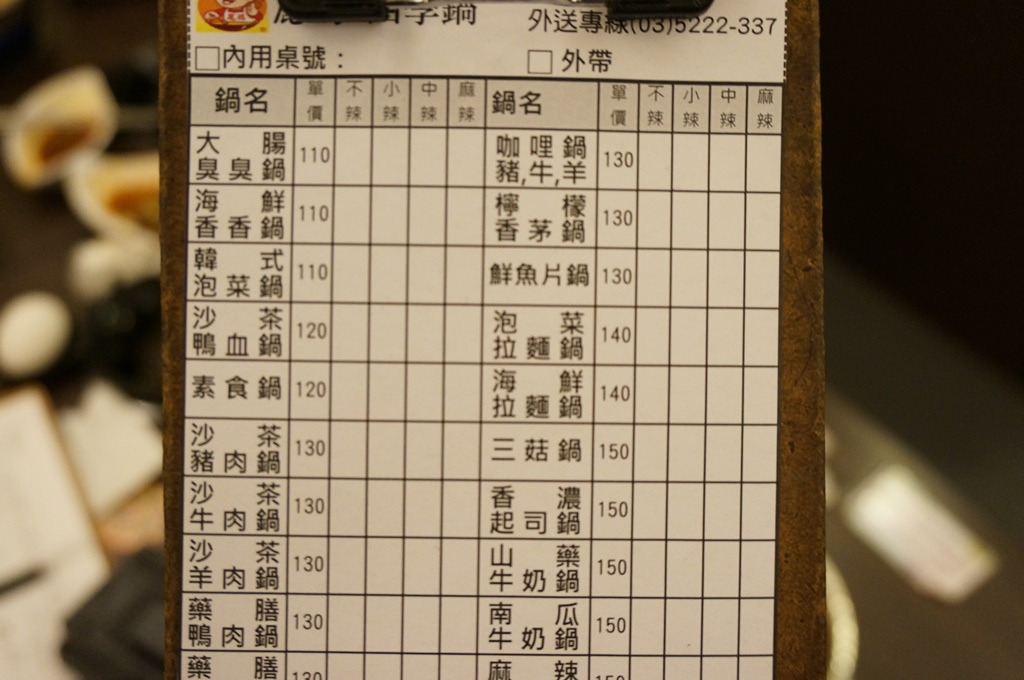 外送專線(03)5222-337
□內用桌號： □外帶
鍋名 單價 不辣 小辣 中辣 麻辣 鍋名 單價 不辣 小辣 中辣 麻辣
大腸臭臭鍋 110 咖哩鍋豬,牛,羊 130
海鮮香香鍋 110 檸檬香茅鍋 130
韓式泡菜鍋 110 鮮魚片鍋 130
沙茶鴨血鍋 120 泡菜拉麵鍋 140
素食鍋 120 海鮮拉麵鍋 140
沙茶豬肉鍋 130 三菇鍋 150
沙茶牛肉鍋 130 香濃起司鍋 150
沙茶羊肉鍋 130 山藥牛奶鍋 150
藥膳鴨肉鍋 130 南瓜牛奶鍋 150
藥膳 130 麻辣 150